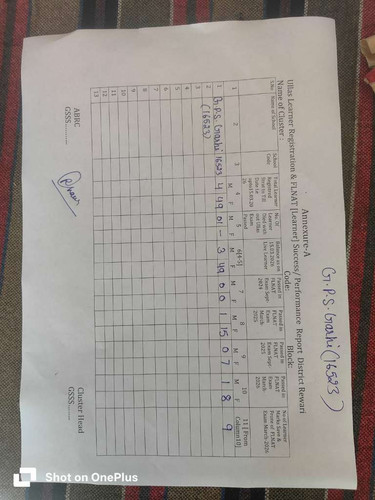 G.P.S. Garhi (16523)
Annexure-A
Ullas Learner Registration & FLNAT [Learner] Success/ Performance Report District Rewari
Name of Cluster : Code: Block:
S.No. Name of School School Code Total Learner
No. Of Learner
Passed in FLNAT Exam Sept- 2024
Passed in FLNAT Exam March- 2025
Passed in FLNAT Exam Sept- 2025
Passed in FLNAT Exam March- 2026
1 2 3 4 5 6[4-5] 7 8 9 10 11 [From Column10]
M F M F M F M F M F M F M F
1 G.P.S. Garhi 16523 4 49 01 - 3 49 0 0 1 15 0 7 1 8 9
(16523)
2
3
4
5
6
7
8
9
10
11
12
13
ABRC Cluster Head
GSSS....... GSSS.......
Shot on OnePlus